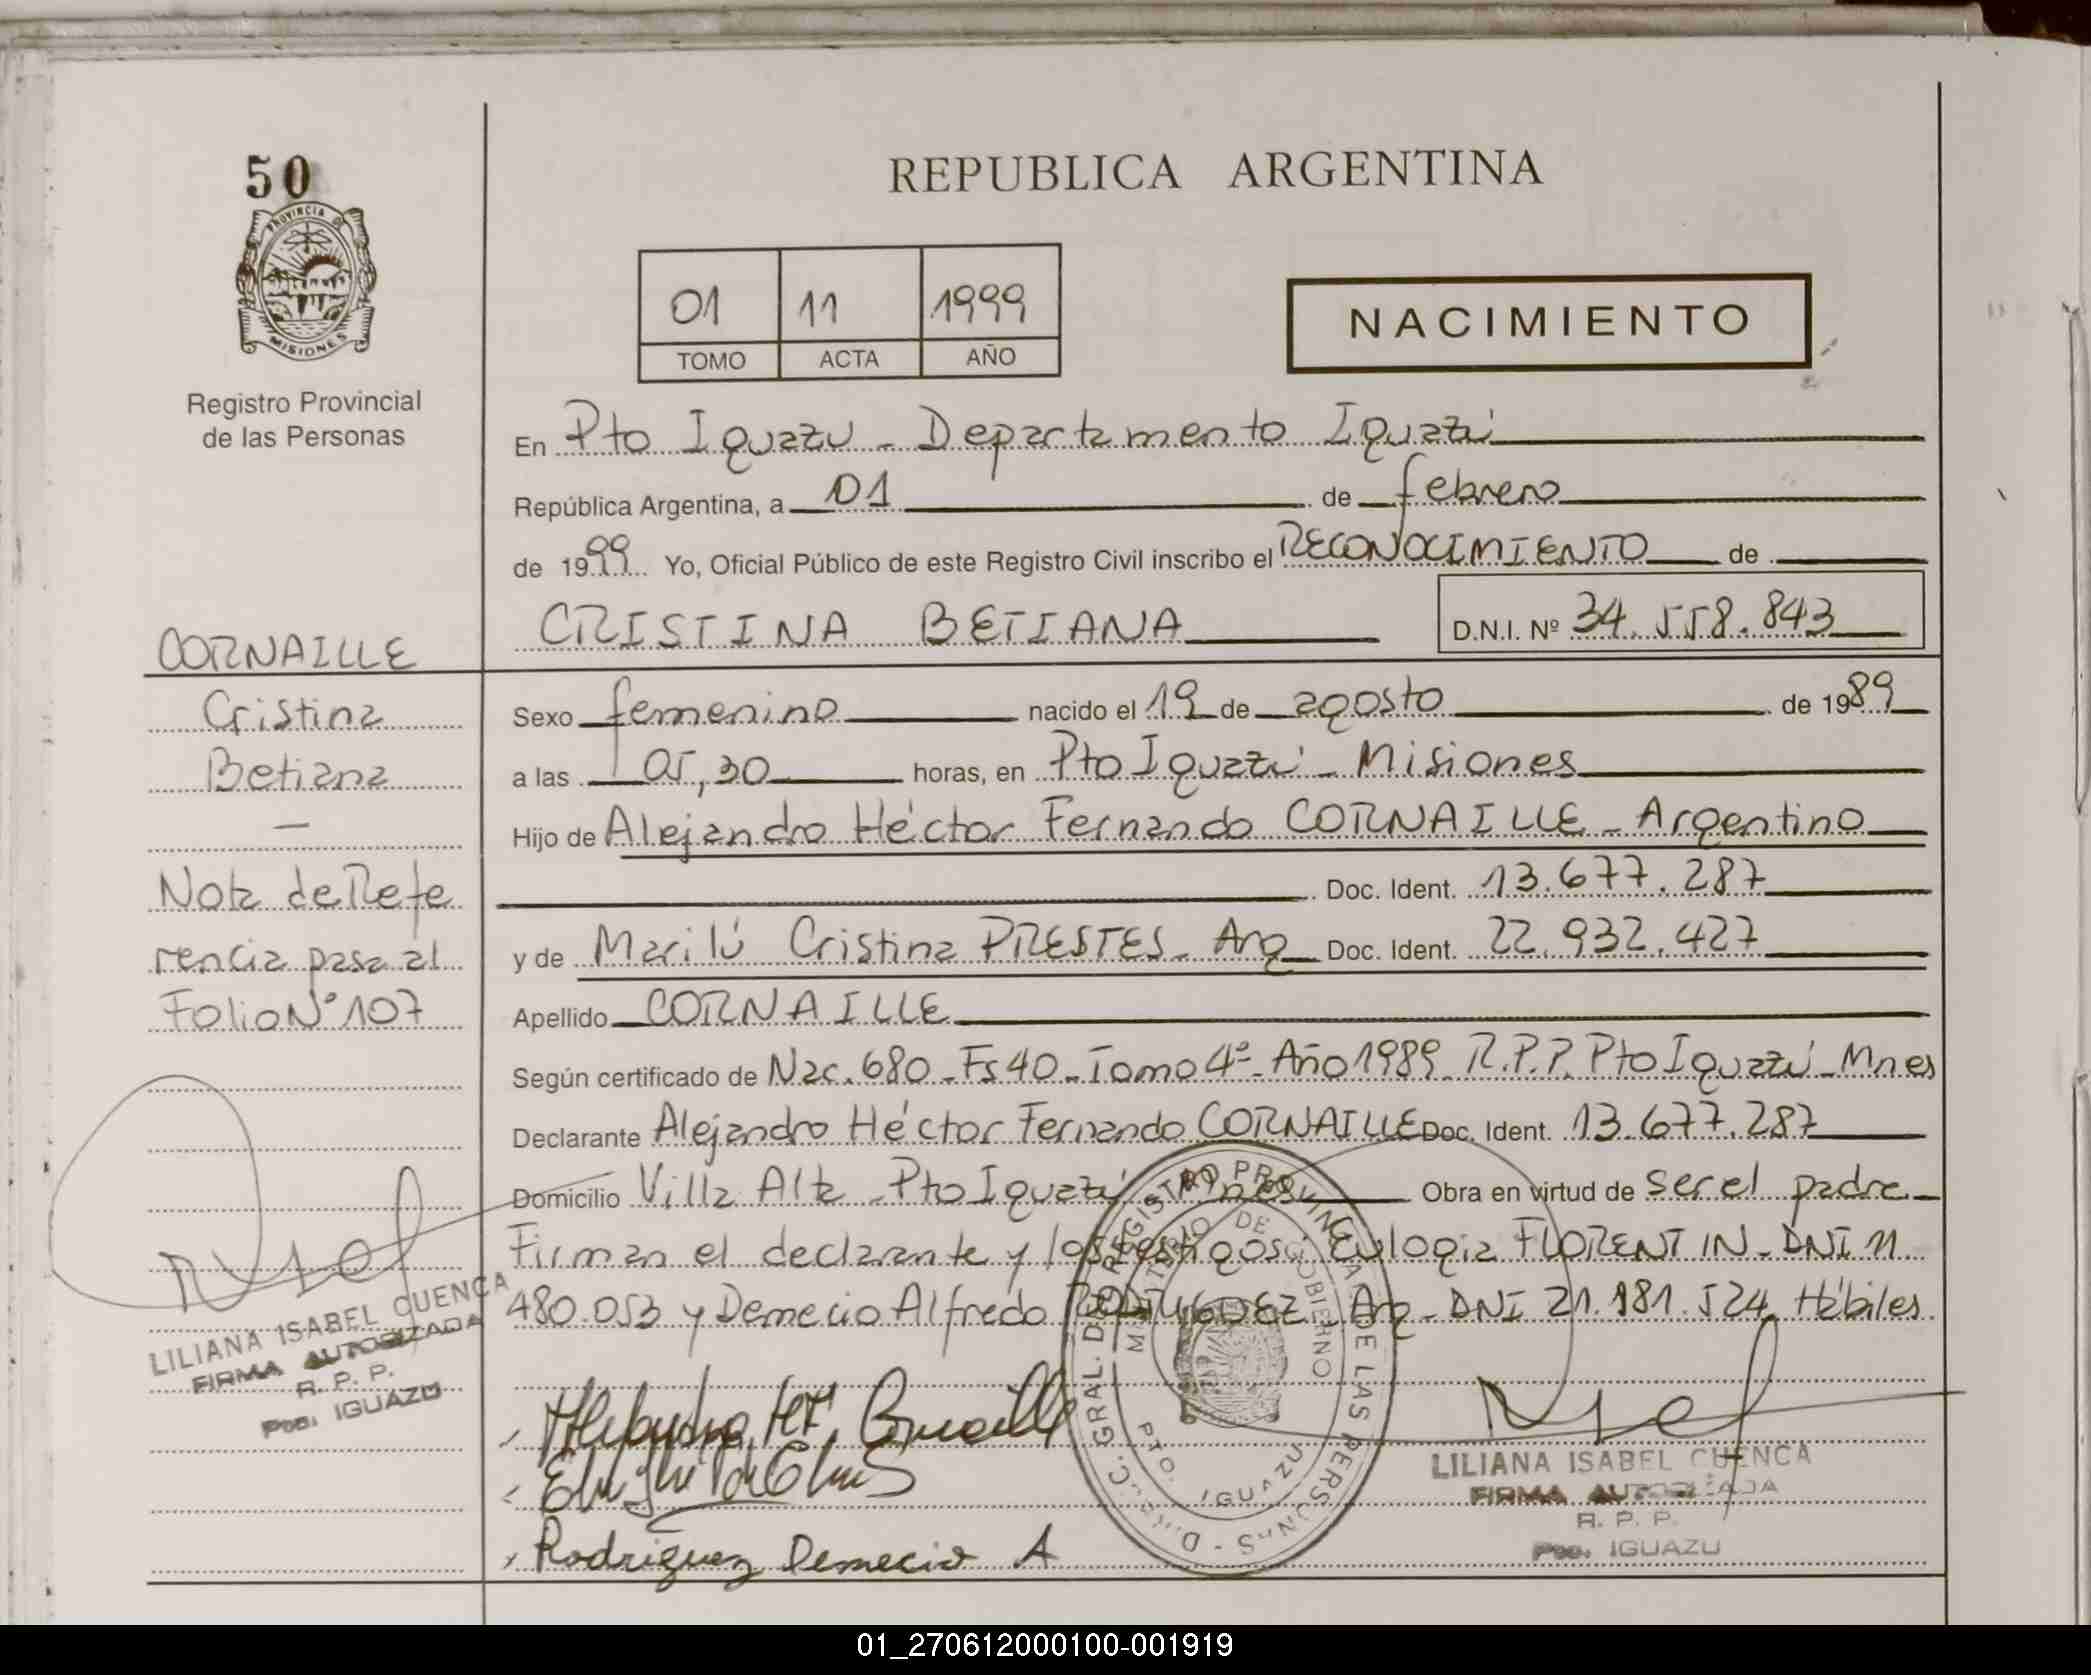 50
PROVINCIA DE
MISIONES
Registro Provincial
de las Personas
CORNAILLE
Cristina
Betiana
—
Nota de Refe
rencia pasa al
Folio N° 107
LILIANA ISABEL CUENCA
FIRMA AUTORIZADA
R. P. P.
Pto. IGUAZU
REPUBLICA ARGENTINA
01 11 1999
TOMO ACTA AÑO
NACIMIENTO
En Pto Iguazu - Departamento Iguazú
República Argentina, a 01 de febrero
de 1999 Yo, Oficial Público de este Registro Civil inscribo el RECONOCIMIENTO de
CRISTINA BETIANA D.N.I. Nº 34.558.843
Sexo femenino nacido el 19 de agosto de 1989
a las 05,30 horas, en Pto Iguazú - Misiones
Hijo de Alejandro Héctor Fernando CORNAILLE - Argentino
Doc. Ident. 13.677.287
y de Marilú Cristina PRESTES - Arg Doc. Ident. 22.932.427
Apellido CORNAILLE
Según certificado de Nac. 680 - Fs 40 - Tomo 4° - Año 1989 - R.P.P. Pto Iguazú - Mnes
Declarante Alejandro Héctor Fernando CORNAILLE Doc. Ident. 13.677.287
Domicilio Villa Alta - Pto Iguazú Mnes Obra en virtud de ser el padre
Firman el declarante y los testigos: Eulogia FLORENTIN - DNI 11
480.053 y Demecio Alfredo RODRIGUEZ - Arg - DNI 21.981.524 Hábiles
Rodriguez Demecio A
D.R.C. GRAL. DEL REGISTRO PROVINCIAL DE LAS PERSONAS
MINISTERIO DE GOBIERNO
PTO. IGUAZU
LILIANA ISABEL CUENCA
FIRMA AUTORIZADA
R. P. P.
Pto. IGUAZU
01_270612000100-001919